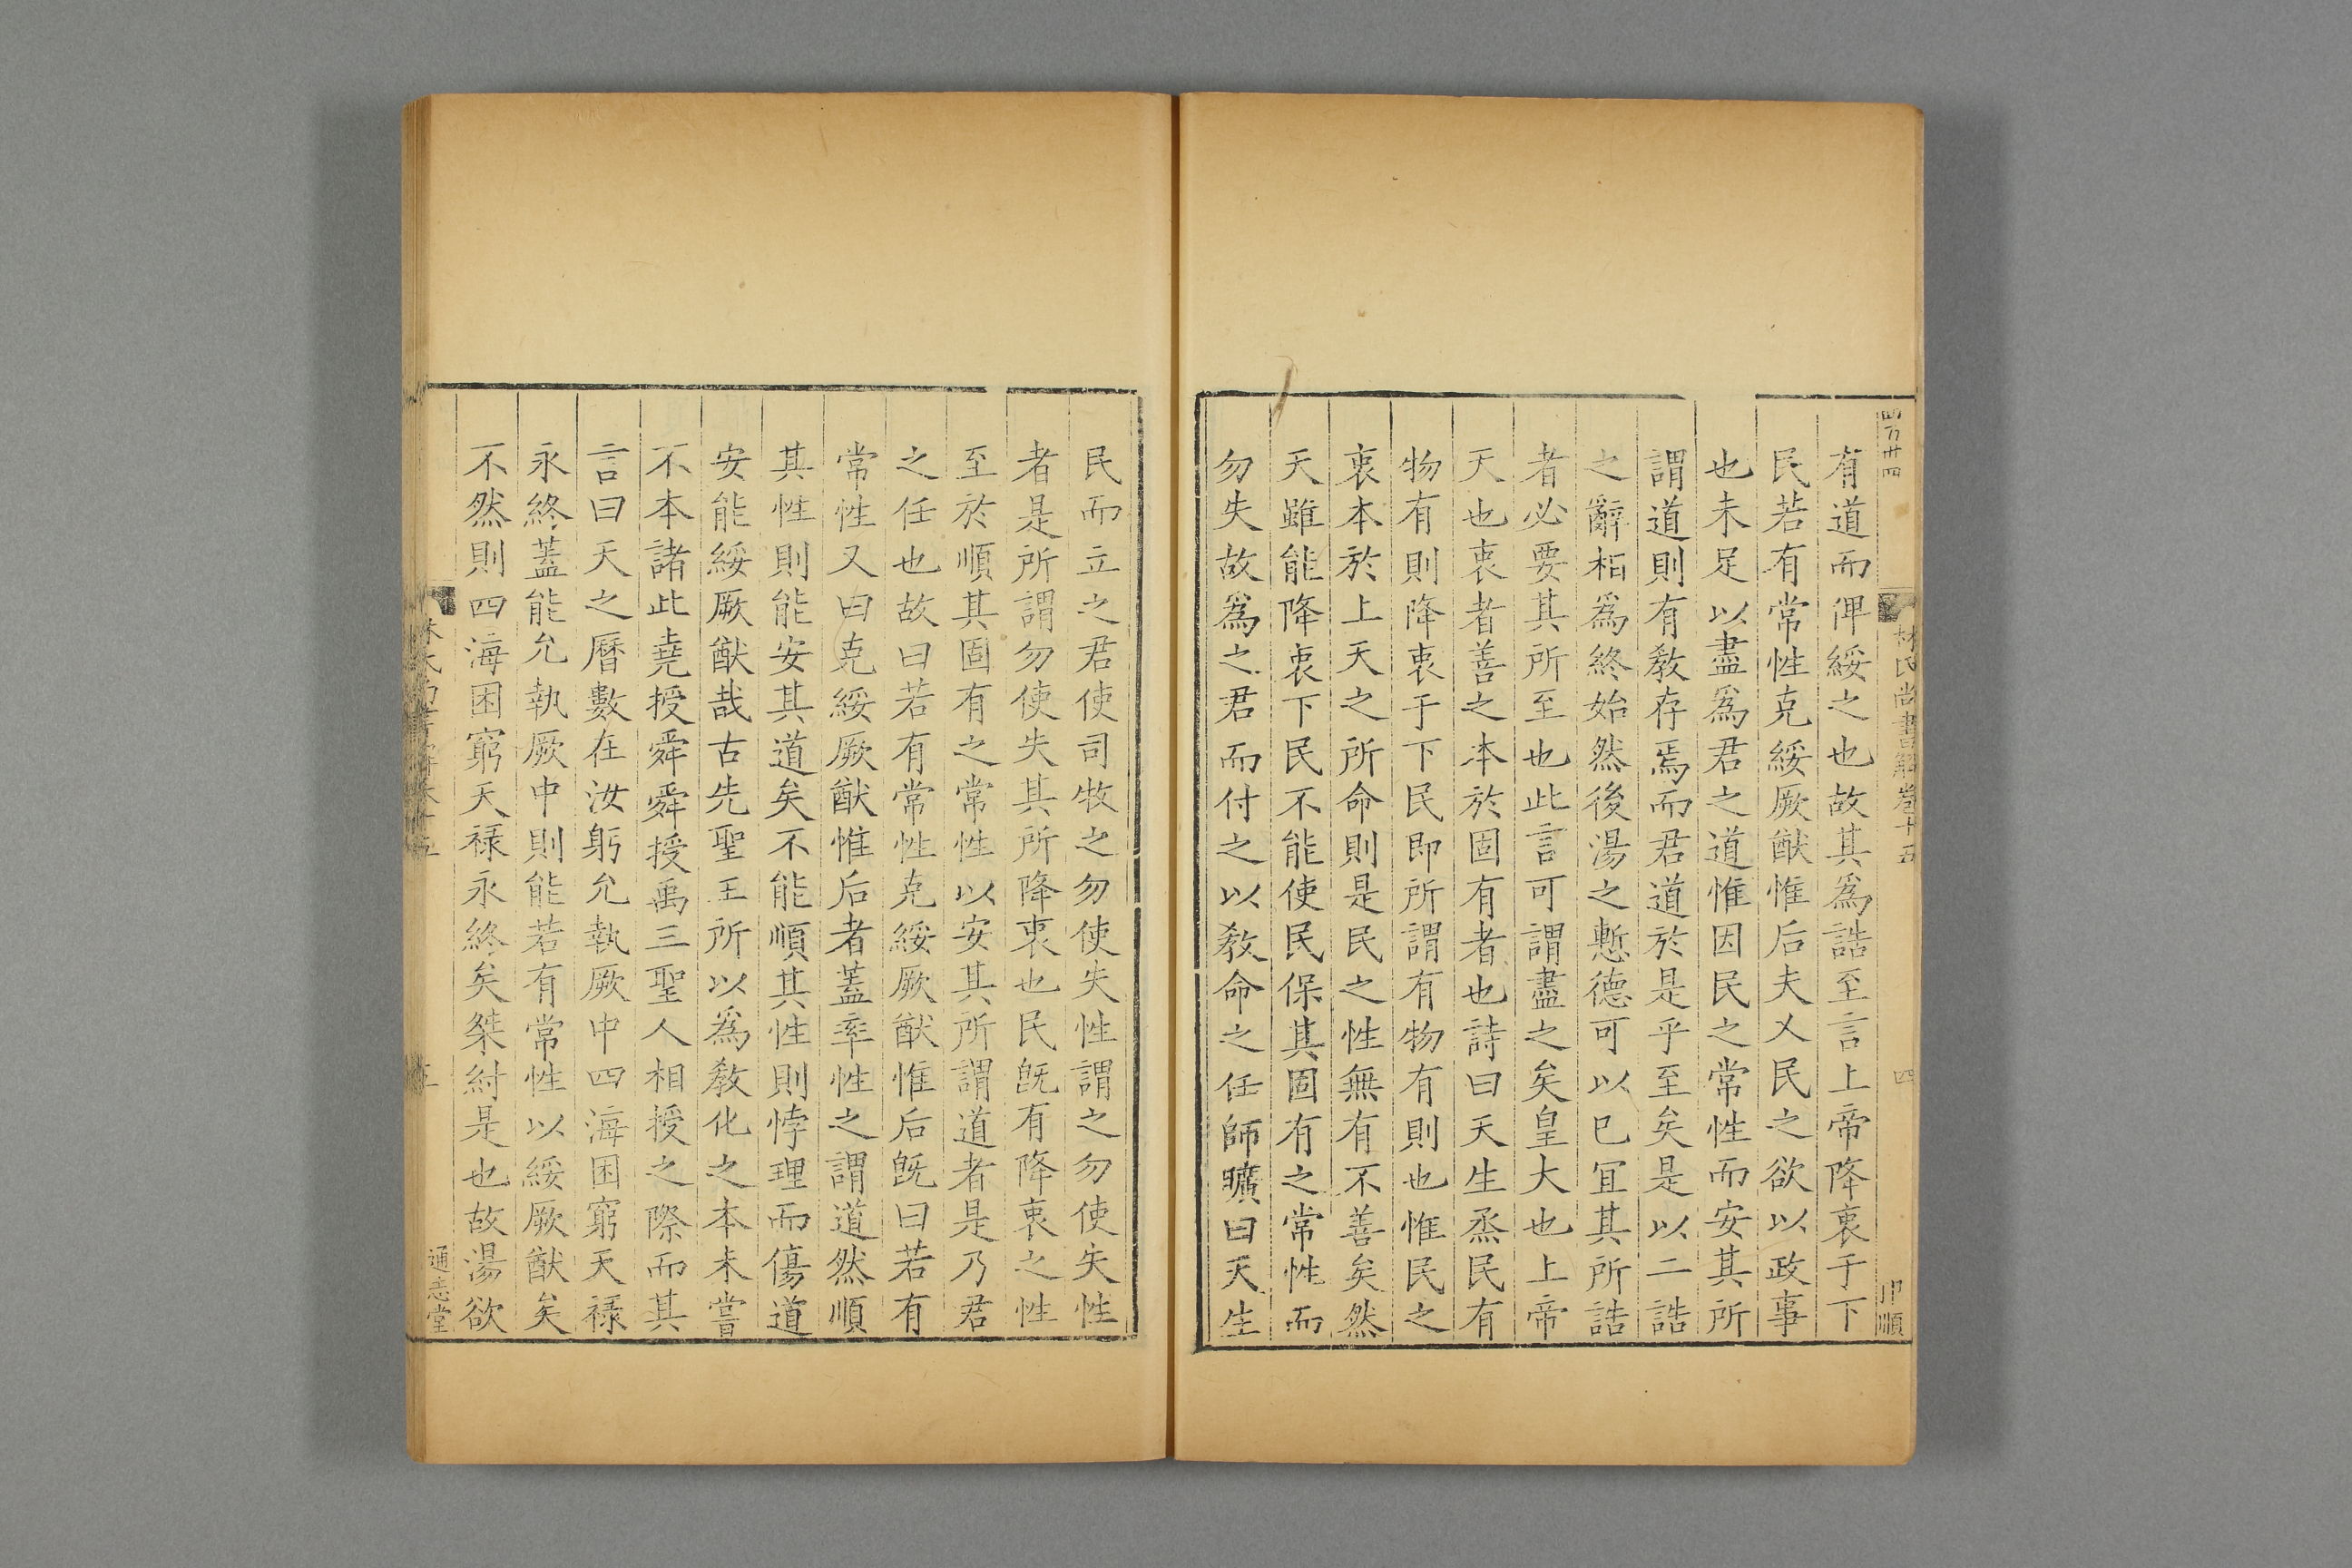 林氏尚書解卷十五
四
有道而俾綏之也故其爲誥至言上帝降衷于下
民若有常性克綏厥猷惟后夫乂民之欲以政事
也未足以盡爲君之道惟因民之常性而安其所
謂道則有敎存焉而君道於是乎至矣是以二誥
之辭相爲終始然後湯之慙德可以已冝其所誥
者必要其所至也此言可謂盡之矣皇大也上帝
天也衷者善之本於固有者也詩曰天生烝民有
物有則降衷于下民即所謂有物有則也惟民之
衷本於上天之所命則是民之性無有不善矣然
天雖能降衷下民不能使民保其固有之常性而
勿失故爲之君而付之以敎命之任師曠曰天生
民而立之君使司牧之勿使失性謂之勿使失性
者是所謂勿使失其所降衷也民旣有降衷之性
至於順其固有之常性以安其所謂道者是乃君
之任也故曰若有常性克綏厥猷惟后旣曰若有
常性又曰克綏厥猷惟后者蓋率性之謂道然順
其性則能安其道矣不能順其性則悖理而傷道
安能綏厥猷哉古先聖王所以爲敎化之本未嘗
不本諸此堯授舜舜授禹三聖人相授之際而其
言曰天之曆數在汝躬允執厥中四海困窮天禄
永終蓋能允執厥中則能若有常性以綏厥猷矣
不然則四海困窮天禄永終矣桀紂是也故湯欲
通志堂